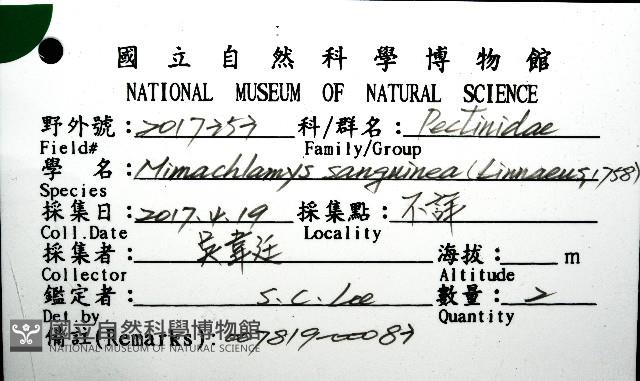 國立自然科學博物館
NATIONAL MUSEUM OF NATURAL SCIENCE
野外號: 科/群名: Pectinidae
Field# Family/Group
學 名: Mimachlamys sanguinea (Linnaeus, 1758)
Species
採集日: 2017.4.19 採集點: 不詳
Coll.Date Locality
採集者: 吳韋廷 海拔: m
Collector Altitude
鑑定者: S.C. Lee 數量: 2
Det.by Quantity
備註(Remarks):
國立自然科學博物館
NATIONAL MUSEUM OF NATURAL SCIENCE